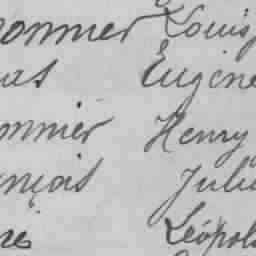 onnier Louis
as Eugène
onnier Henry
nçois Juli
res Léopol